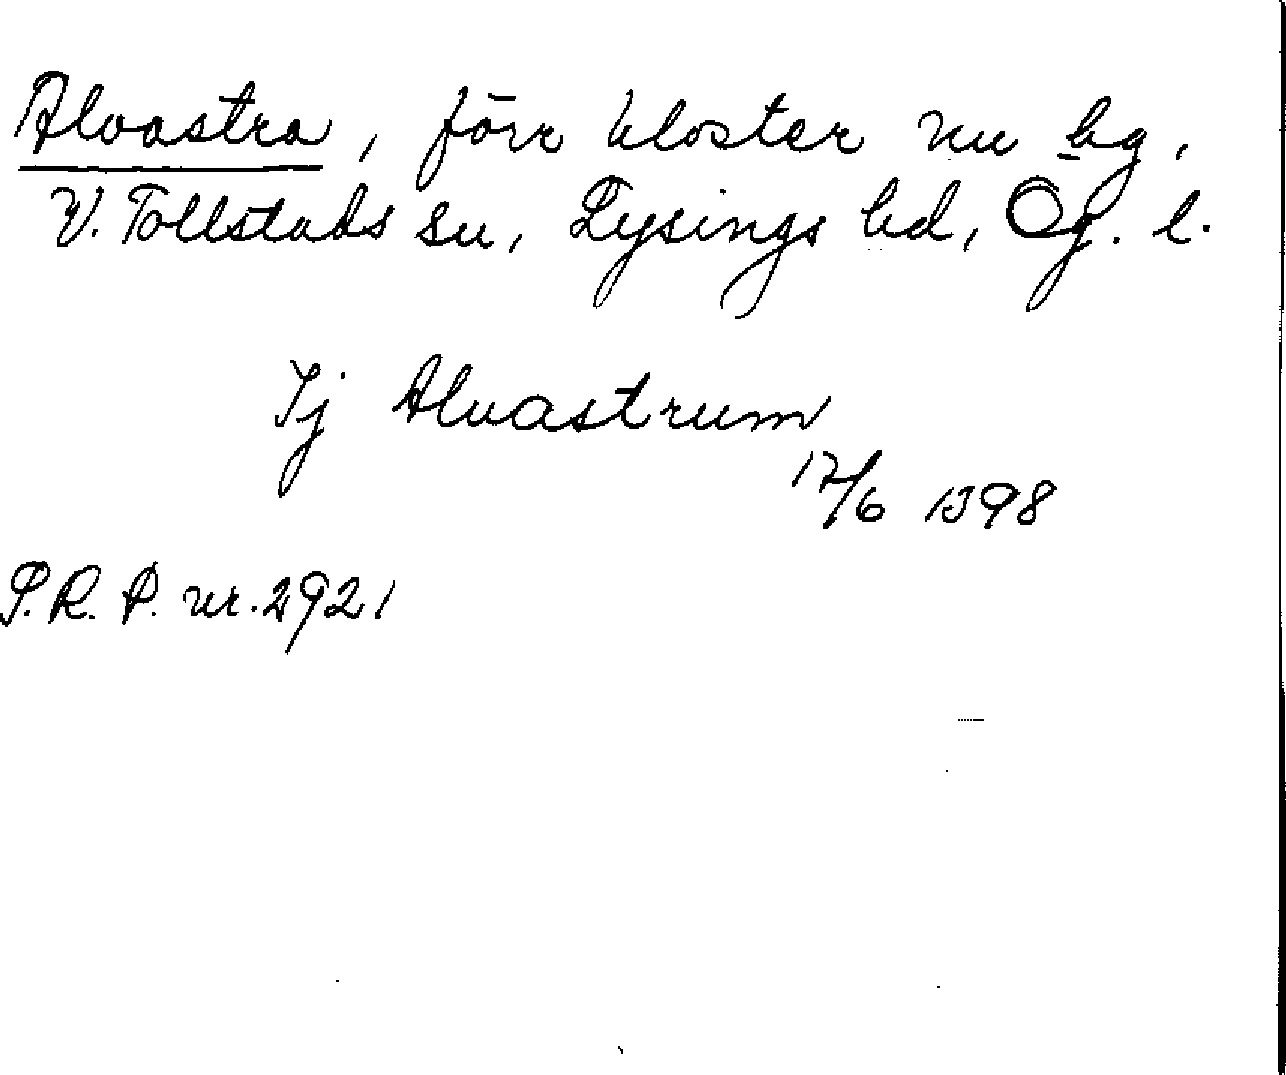 Alvastra, förr kloster nu hg,
V. Tollstads sn, Lysings hd, Ög. l.
Ij Alvastrum
17/6 1398
P.R.P. nr. 2921